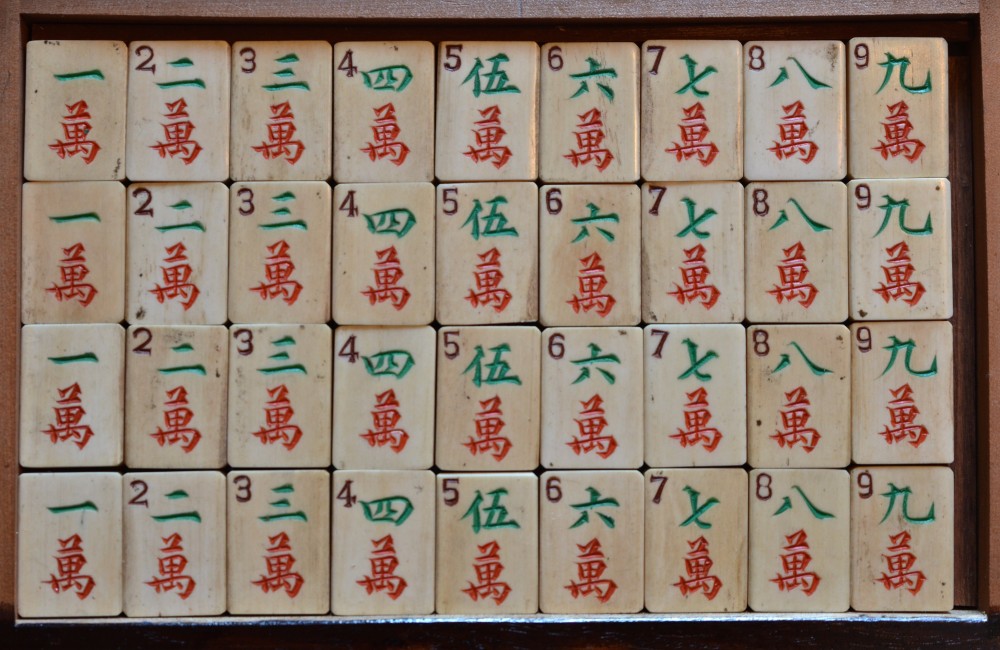 一 2 二 3 三 4 四 5 伍 6 六 7 七 8 八 9 九
萬 萬 萬 萬 萬 萬 萬 萬 萬
一 2 二 3 三 4 四 5 伍 6 六 7 七 8 八 9 九
萬 萬 萬 萬 萬 萬 萬 萬 萬
一 2 二 3 三 4 四 5 伍 6 六 7 七 8 八 9 九
萬 萬 萬 萬 萬 萬 萬 萬 萬
一 2 二 3 三 4 四 5 伍 6 六 7 七 8 八 9 九
萬 萬 萬 萬 萬 萬 萬 萬 萬